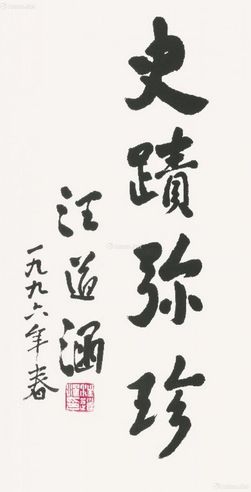 史蹟弥珍
汪道涵
一九九六年春